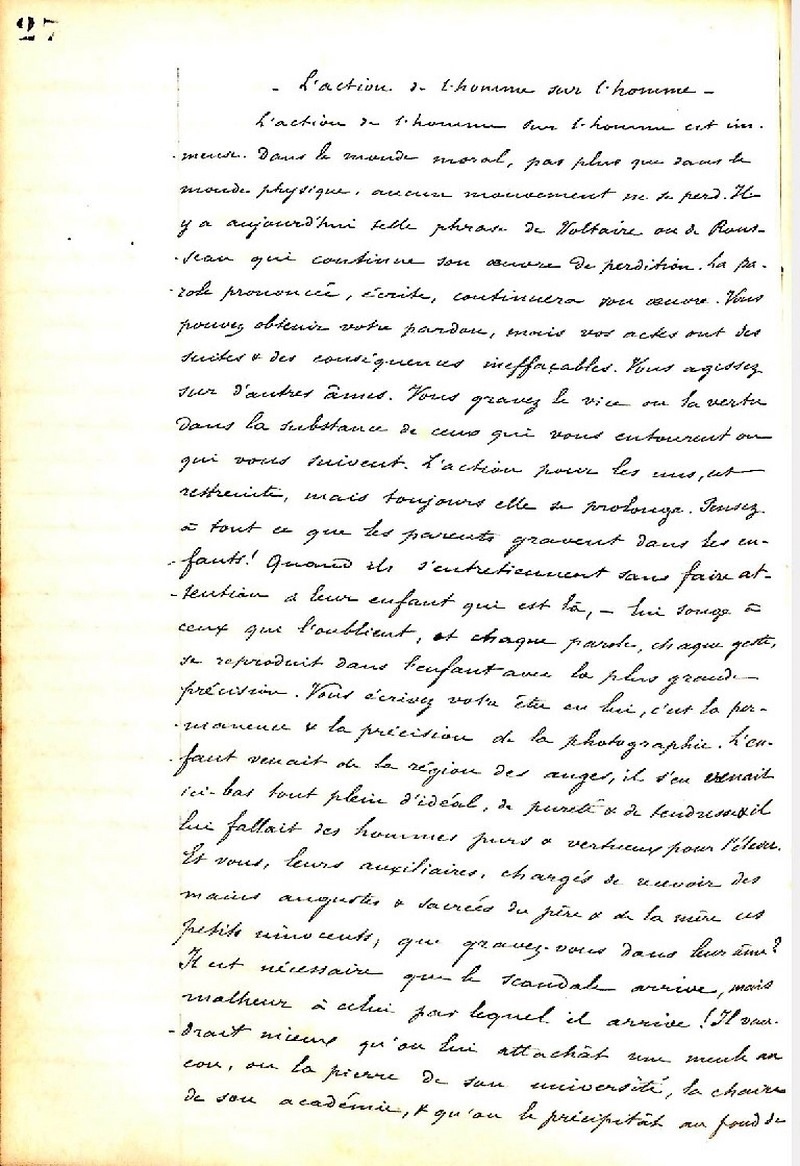 27
- L'action de l'homme sur l'homme -
L'action de l'homme sur l'homme est im-
-mense. Dans le monde moral, pas plus que dans le
monde physique, aucun mouvement ne se perd. Il
y a aujourd'hui telle phrase de Voltaire ou de Rous-
-seau qui continue son œuvre de perdition. La pa-
-role prononcée, écrite, continuera son œuvre. Vous
pouvez obtenir votre pardon, mais vos actes ont des
suites & des conséquences ineffaçables. Vous agissez
sur d'autres âmes. Vous gravez le vice ou la vertu
dans la substance de ceux qui vous entourent ou
qui vous suivent. L'action pour les uns, est
restreinte, mais toujours elle se prolonge. Pensez
à tout ce que les parents gravent dans les en-
-fants! Quand ils s'entretiennent sans faire at-
-tention à leur enfant qui est là, - lui songe à
ceux qui l'oublient, et chaque parole, chaque geste,
se reproduit dans l'enfant avec la plus grande
précision. Vous écrivez votre être en lui, c'est la per-
-manence & la précision de la photographie. L'en-
-fant venait de la région des anges, il s'en venait
ici-bas tout plein d'idéal, de pureté & de tendresse & il
lui fallait des hommes purs & vertueux pour l'élever.
Et vous, leurs auxiliaires, chargés de recevoir des
mains augustes & sacrées du père & de la mère ces
petits innocents, que gravez-vous dans leur âme?
Il est nécessaire que le scandale arrive, mais
malheur à celui par lequel il arrive! Il vau-
-drait mieux qu'on lui attachât une meule au
cou, ou la pierre de son université, la chaire
de son académie, & qu'on le précipitât au fond de